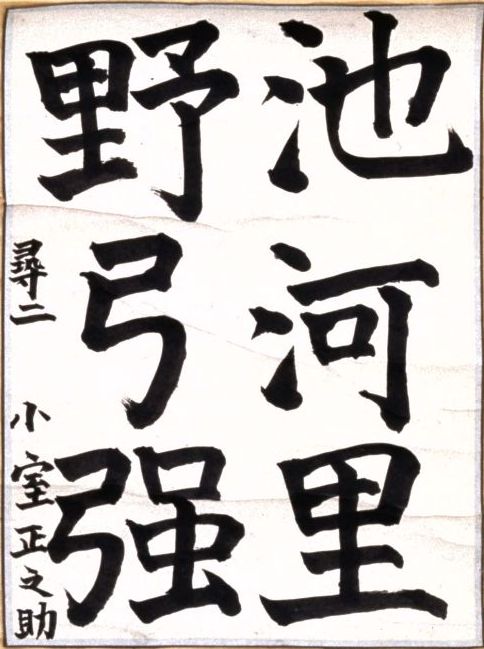 池河里
野弓强
尋二 小室正之助